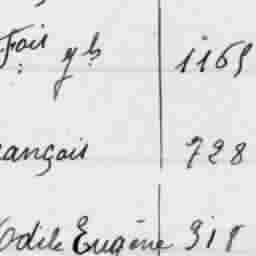 Fois yb 1165
ançois 728
Odile Eugène 318